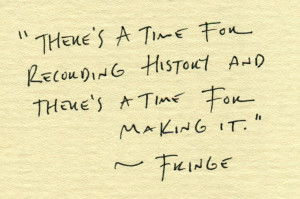 "THERE'S A TIME FOR
RECORDING HISTORY AND
THERE'S A TIME FOR
MAKING IT."
~ FRINGE